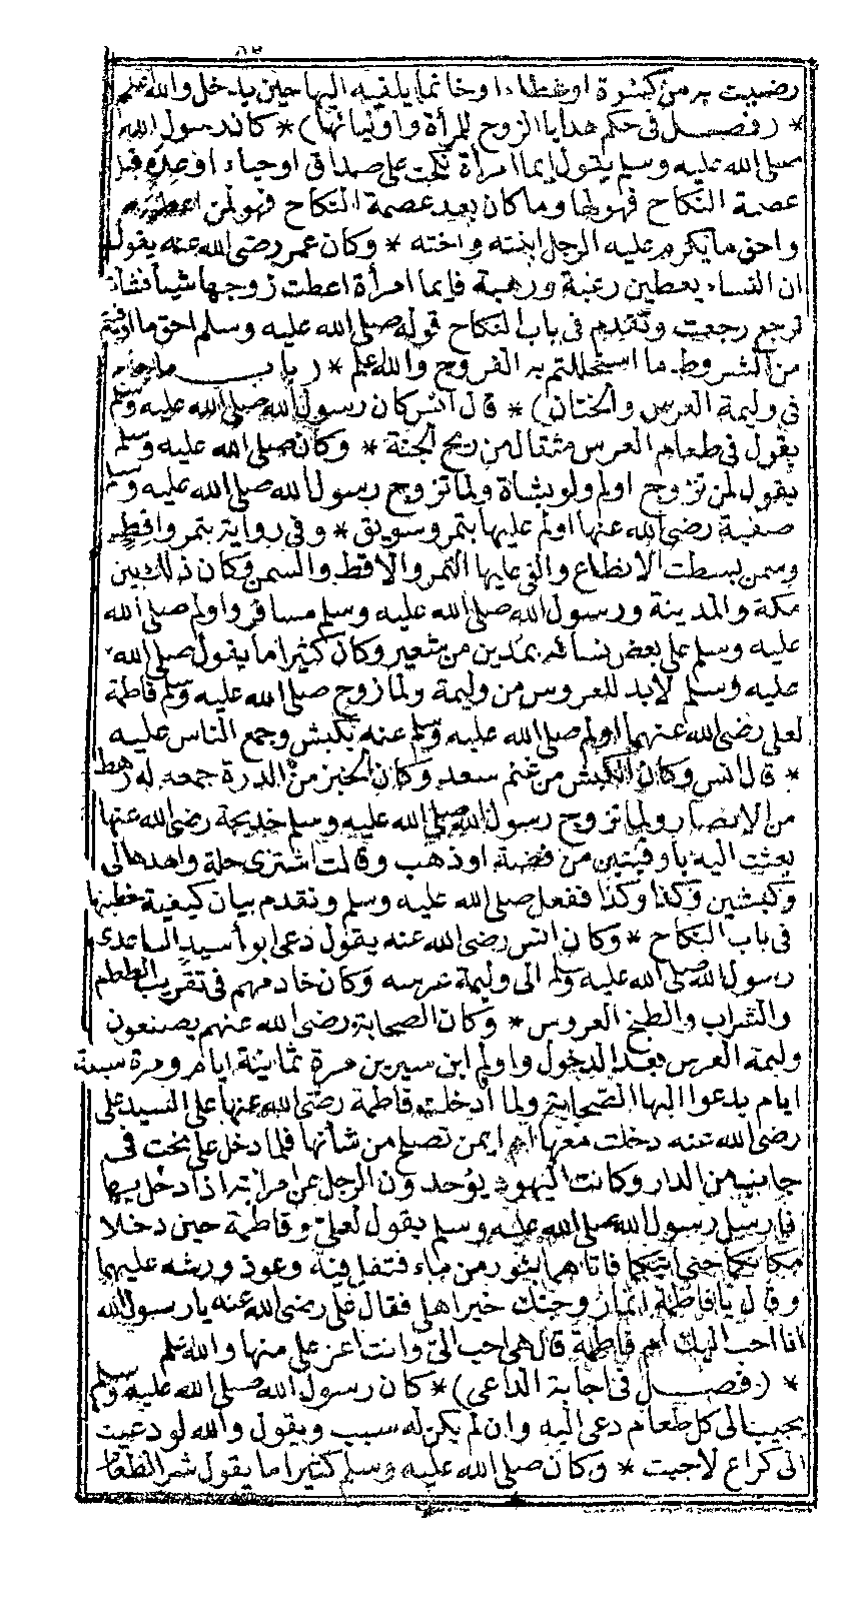 ٨٣
رضيت به من كسوة او عطاء او خاتما يلقيه اليها حين يدخل والله اعلم
* (فصل في حكم هدايا الزوج للمرأة واوليائها) * كان رسول الله
صلى الله عليه وسلم يقول إيما امرأة نكحت على صداق او حباء او عدة قبل
عصمة النكاح فهو لها وما كان بعد عصمة النكاح فهو لمن اعطيه
واحق ما يكرم عليه الرجل ابنته واخته * وكان عمر رضى الله عنه يقول
ان النساء يعطين رغبة ورهبة فايما امرأة اعطت زوجها شيأ فشاءت
ترجع رجعت وتقدم في باب النكاح قوله صلى الله عليه وسلم احق ما اوفيتم
من الشروط ما استحللتم به الفروج والله اعلم * (باب ما جاء
في وليمة العرس والختان) * قال انس كان رسول الله صلى الله عليه وسلم
يقول في طعام العرس مثقال من ريح الجنة * وكان صلى الله عليه وسلم
يقول لمن تزوج اولم ولو بشاة ولما تزوج رسول الله صلى الله عليه وسلم
صفية رضى الله عنها اولم عليها بتمر وسويق * وفي رواية بتمر واقط
وسمن بسطت الانطاع والقي عليها التمر والاقط والسمن وكان ذلك بين
مكة والمدينة ورسول الله صلى الله عليه وسلم مسافر واولم صلى الله
عليه وسلم على بعض نسائه بمدين من شعير وكان كثيرا ما يقول صلى الله
عليه وسلم لابد للعروس من وليمة ولما زوج صلى الله عليه وسلم فاطمة
لعلي رضى الله عنهما اولم صلى الله عليه وسلم عنه بكبش وجمع الناس عليه
* قال انس وكان الكبش من غنم سعد وكان الخبز من الذرة جمعه له رهط
من الانصار ولما تزوج رسول الله صلى الله عليه وسلم خديجة رضى الله عنها
بعثت اليه باوقيتين من فضة او ذهب وقالت اشترى حلة واهدها لى
وكبشين وكذا وكذا ففعل صلى الله عليه وسلم وتقدم بيان كيفية خطبتها
في باب النكاح * وكان انس رضى الله عنه يقول دعى ابو أسيد الساعدى
رسول الله صلى الله عليه وسلم الى وليمة عرسه وكان خادمهم في تقريب الطعام
والشراب والطبخ العروس * وكان الصحابة رضى الله عنهم يصنعون
وليمة العرس بعد الدخول واولم ابن سيرين مرة ثمانية ايام ومرة سبعة
ايام يدعوا اليها الصحابة ولما أدخلت فاطمة رضى الله عنها على السيد على
رضى الله عنه دخلت معها ام ايمن تصلح من شأنها فلما دخل على نحت في
جانب من الدار وكانت اليهود يؤخذون الرجل عن امرأته اذا دخل بها
فارسل رسول الله صلى الله عليه وسلم يقول لعلي وفاطمة حين دخلا
مكانكما حتى اتيكما فاتاهما بتور من ماء فتفل فيه وعوذ ورشه عليهما
وقال يا فاطمة انما زوجتك خير اهلى فقال على رضى الله عنه يا رسول الله
انا احب اليك ام فاطمة قال هي احب الى وانت اعز على منها والله اعلم
* (فصل في اجابة الداعي) * كان رسول الله صلى الله عليه وسلم
يجيب الى كل طعام دعى اليه وان لم يكن له سبب ويقول والله لو دعيت
الى كراع لاجبت * وكان صلى الله عليه وسلم كثيرا ما يقول شر الطعام